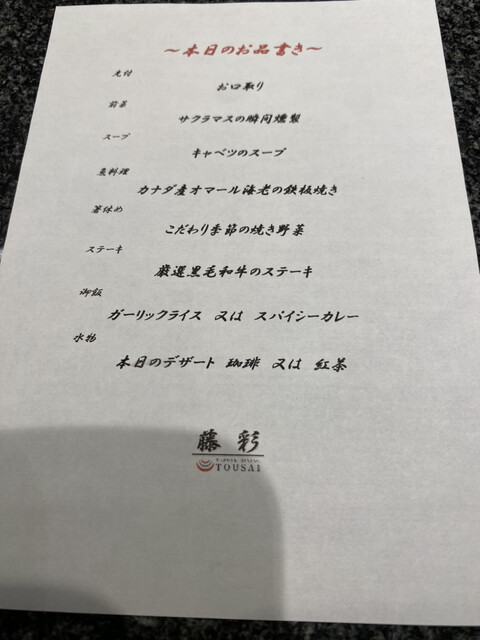 ～本日のお品書き～
先付
お口取り
前菜
サクラマスの瞬間燻製
スープ
キャベツのスープ
魚料理
カナダ産オマール海老の鉄板焼き
箸休め
こだわり季節の焼き野菜
ステーキ
厳選黒毛和牛のステーキ
御飯
ガーリックライス 又は スパイシーカレー
水物
本日のデザート 珈琲 又は 紅茶
藤 彩
TOUSAI